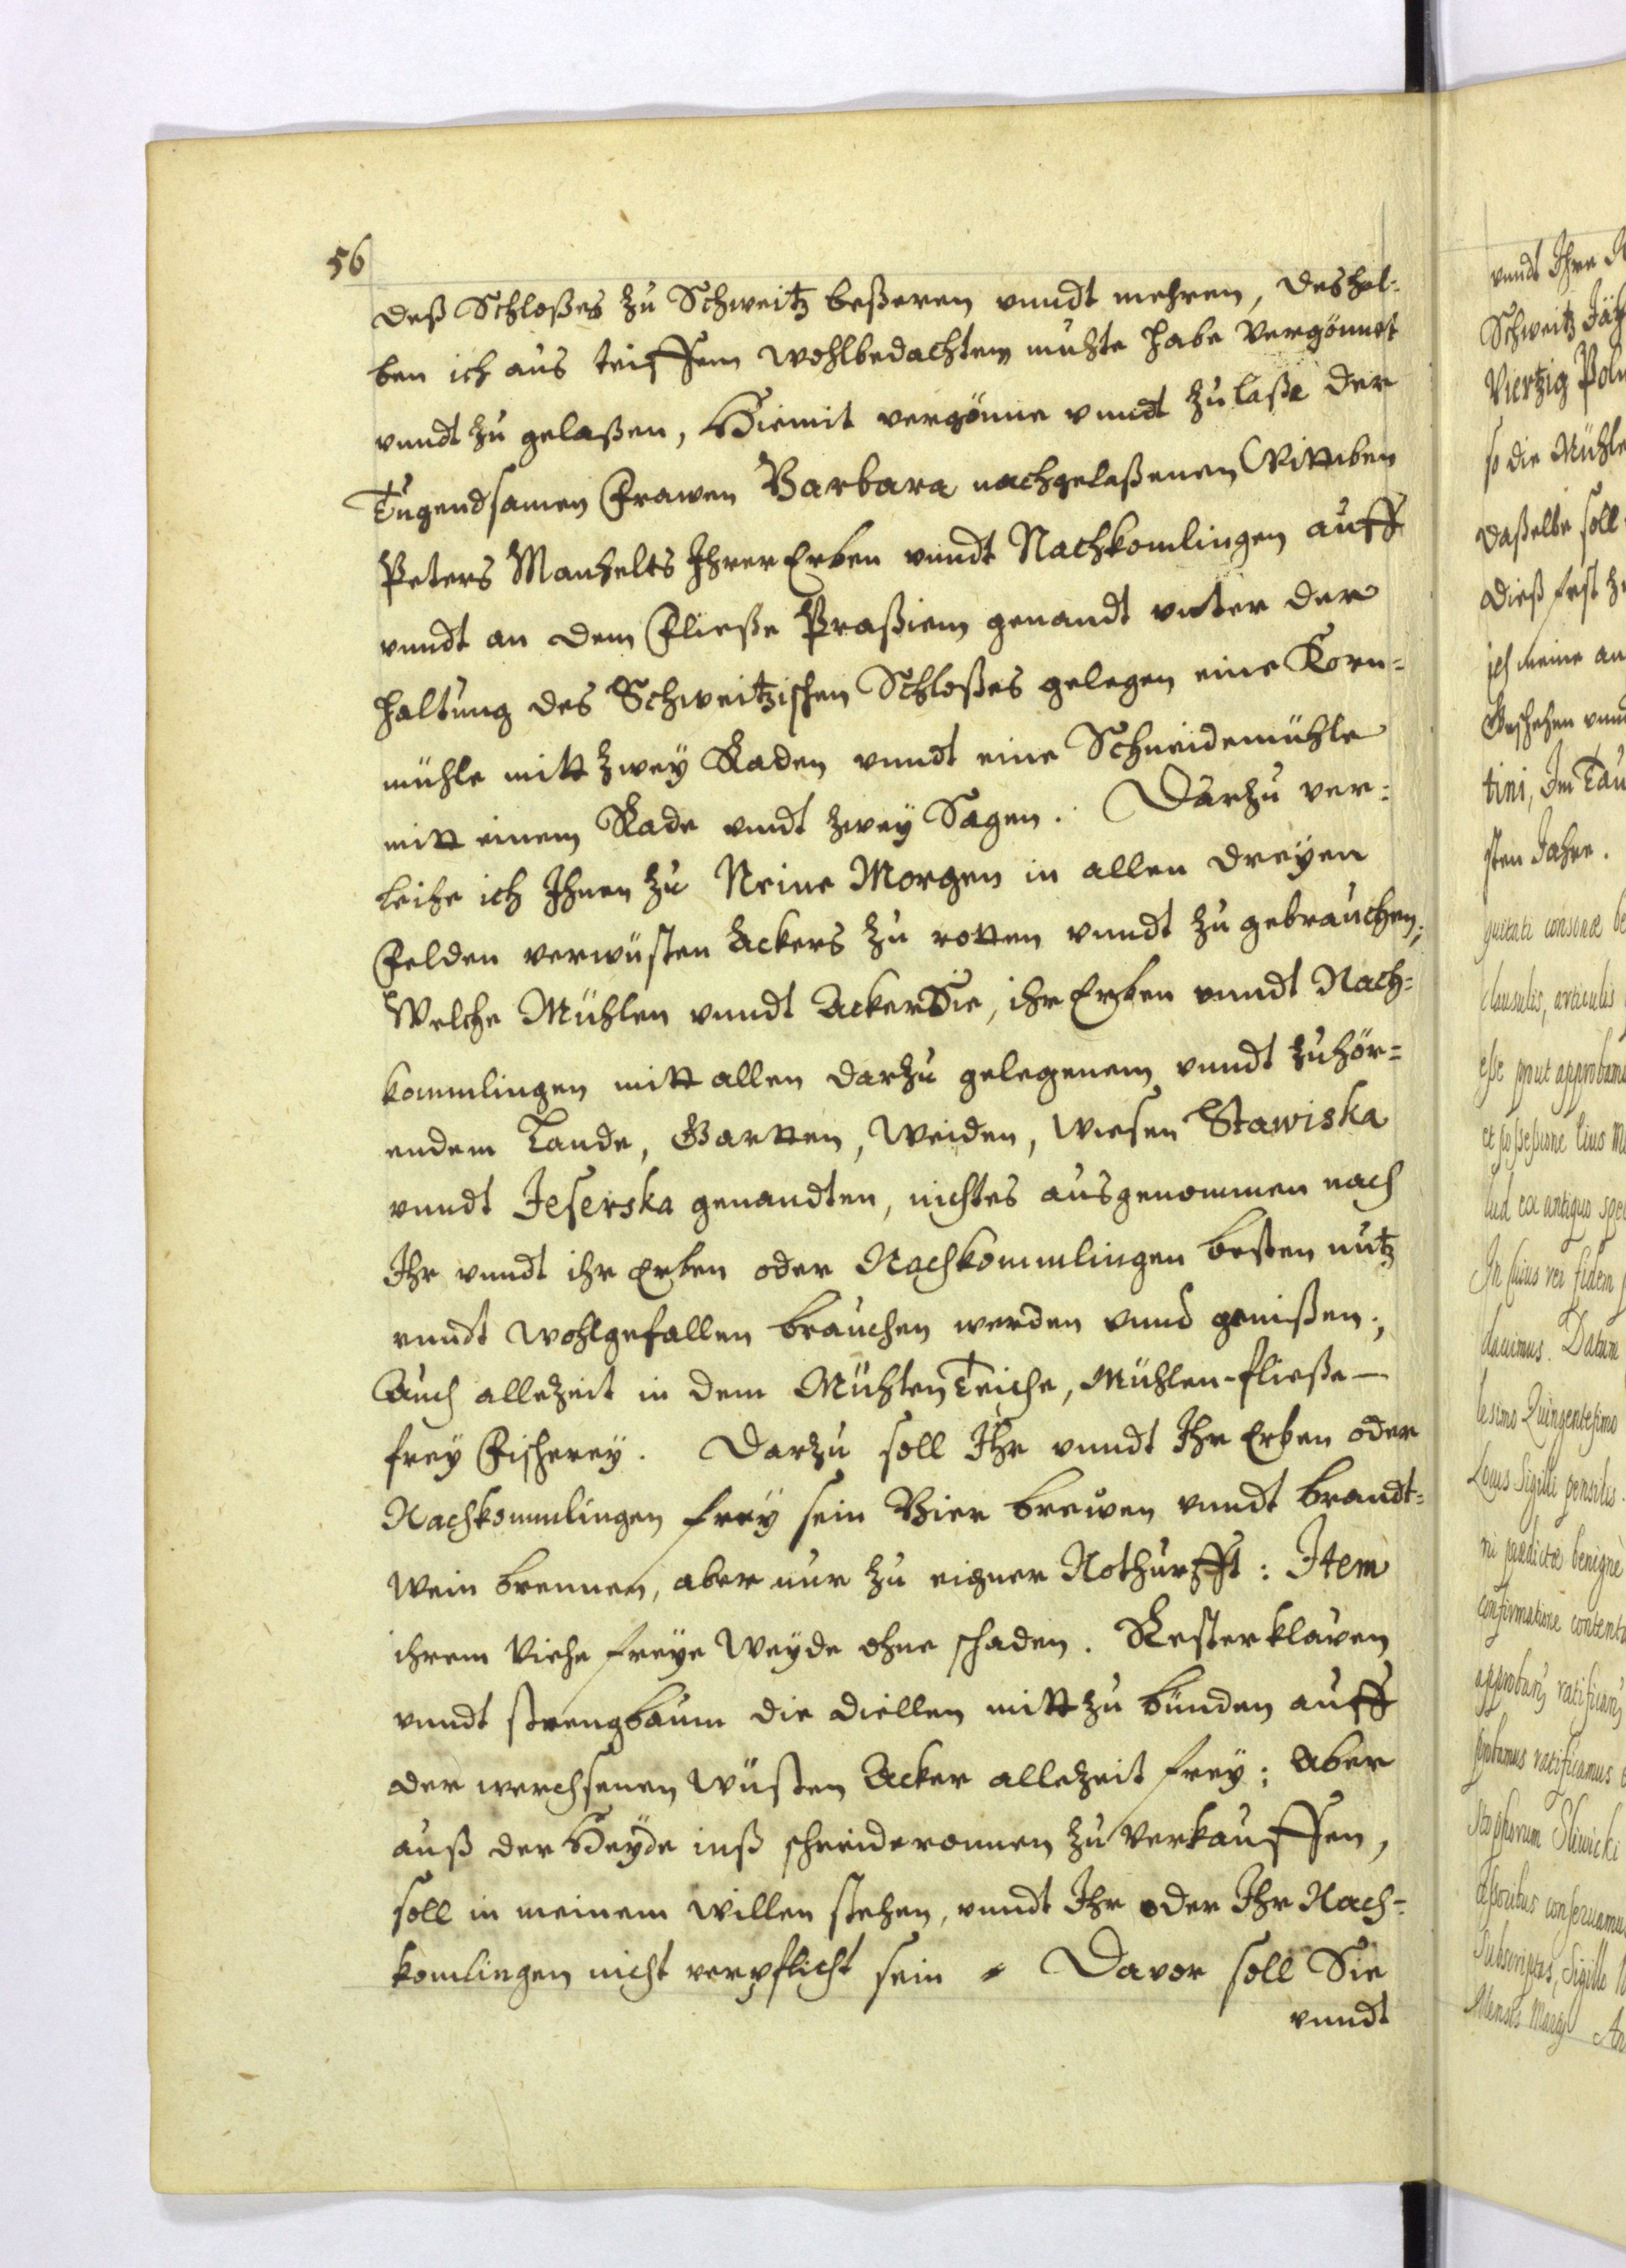 56
deß Schloßes zu Schweitz beßeren vnndt mehren, deshal-
ben ich aus teiffem wohlbedachtem muhte habe vergönnet
vnndt zu gelaßen, Hiemit vergönne vnndt zu laße der
Tugendsamen Frawen Barbara nachgelaßenen Wittiben
Peters Manhelts Ihrer Erben vnndt Nachkomlingen auff
vnndt an dem Fließe Praßiem genandt vnter der
haltung des Schweitzischen Schloßes gelegen eine Korn-
mühle mitt zwey Raden vnndt eine Schneidemühle
mitt einem Rade vndt zwey Sagen. Darzu ver-
leihe ich Ihnen zu Neine Morgen in allen dreyen
Felden verwüsten Ackers zu rotten vnndt zu gebrauchen;
Welche Mühlen vnndt Acker Sie, ihr Erben vnndt Nach-
kommlingen mitt allen darzu gelegenem vnndt zuhör-
endem Lande, Gartten, Weiden, Wiesen Stawiska
vnndt Jeserska genandten, nichtes ausgenommen nach
Ihr vnndt ihr Erben oder Nachkommlingen besten nutz
vnndt wohlgefallen brauchen werden vnnd genißen;
Auch allezeit in dem Mühlen Teiche, Mühlen-fließe
frey Fischerey. Darzu soll Ihr vnndt Ihr Erben oder
Nachkommlingen frey sein Bier brewen vnndt brandt-
wein brennen, aber nur zu eigner Nothurfft: Item
ihrem Viehe freye Weyde ohne schaden. Resterklauen
vnndt strengbaum die diellen mitt zu bünden auff
der werchsenen wüsten Acker allezeit frey; Aber
auß der Heyde inß schneideronnen zu verkauffen,
soll in meinem willen stehen, vnndt Ihr oder Ihr Nach-
komlingen nicht verpflicht sein Davor soll Sie
vnndt
vnndt Ihre
Schweitz
Viertzig Poln
so die Mühle
daßelbe soll
dieß fest
ich meine an
Geschehen vnnd
tini, Im Tau
sten Jahre.
clausulis, articulis
esse prout approbam
lud ex antiquo
In cuius rei fidem
Datum
lesimo Quingentesimo
Locus Sigilli pensilis.
ni prædictæ benigne
confirmatione content
ratificamus
Sliwicki
conservamus
Subscriptas, Sigillo
Mensis